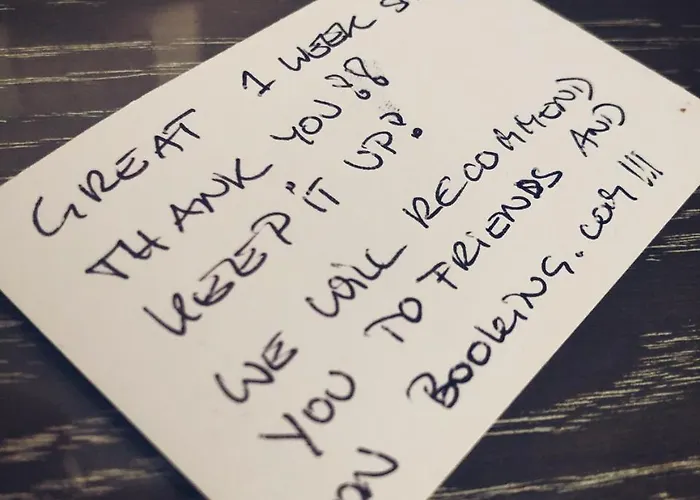 GREAT 1 WEEK S
THANK YOU!!
KEEP IT UP!
WE WILL RECOMMEND
YOU TO FRIENDS AND
ON BOOKING.com!!!